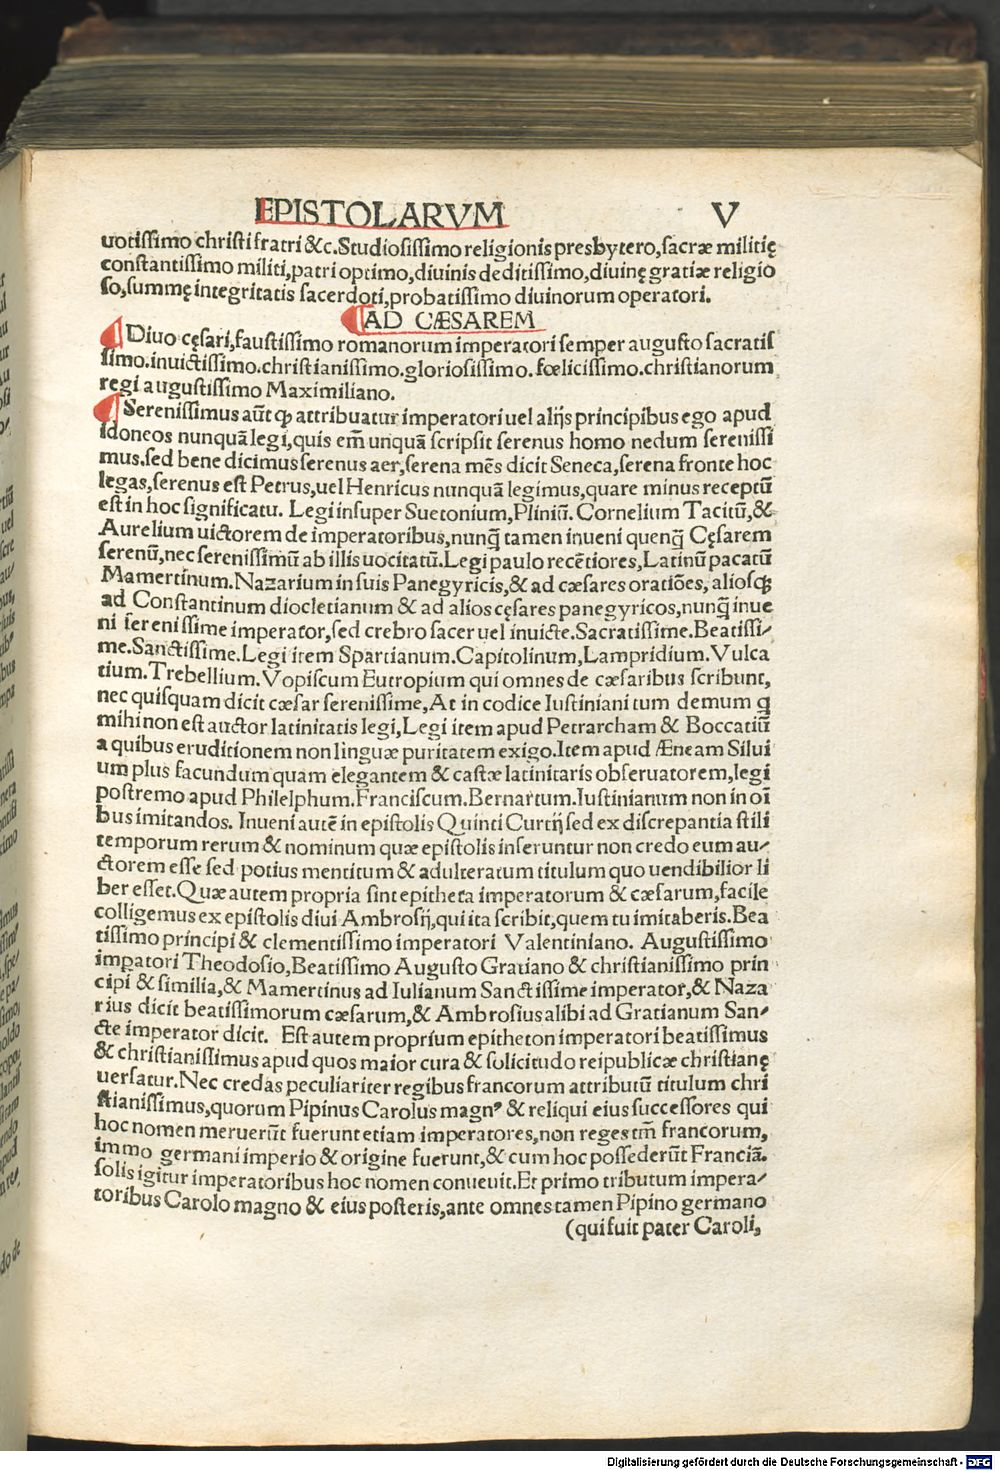 EPISTOLARVM V
uotissimo christi fratri &c. Studiosissimo religionis presbytero, sacræ militię
constantissimo militi, patri optimo, diuinis deditissimo, diuinę gratiæ religio
so, summę integritatis sacerdoti, probatissimo diuinorum operatori.
AD CÆSAREM
Diuo cęsari, faustissimo romanorum imperatori semper augusto sacratis
simo. inuictissimo. christianissimo. gloriosissimo. fœlicissimo. christianorum
regi augustissimo Maximiliano.
Serenissimus aūt ꝙ attribuatur imperatori uel alijs principibus ego apud
idoneos nunquā legi, quis em̄ unquā scripsit serenus homo nedum serenissi
mus. sed bene dicimus serenus aer, serena mēs dicit Seneca, serena fronte hoc
legas, serenus est Petrus, uel Henricus nunquā legimus, quare minus receptū
est in hoc significatu. Legi insuper Suetonium, Pliniū. Cornelium Tacitū, &
Aurelium uictorem de imperatoribus, nunq̄ tamen inueni quenq̄ Cęsarem
serenū, nec serenissimū ab illis uocitatū. Legi paulo recētiores, Latinū pacatū
Mamertinum. Nazarium in suis Panegyricis, & ad cæsares oratiōes, aliosqꝫ
ad Constantinum diocletianum & ad alios cęsares panegyricos, nunq̄ inue
ni serenissime imperator, sed crebro sacer uel inuicte. Sacratissime. Beatissi⸗
me. Sanctissime. Legi item Spartianum. Capitolinum, Lampridium. Vulca
tium. Trebellium. Vopiscum Eutropium qui omnes de cæsaribus scribunt,
nec quisquam dicit cæsar serenissime, At in codice Iustiniani tum demum q
mihi non est auctor latinitatis legi, Legi item apud Petrarcham & Boccatiū
a quibus eruditionem non linguæ puritatem exigo. Item apud Æneam Silui
um plus facundum quam elegantem & castæ latinitaris obseruatorem, legi
postremo apud Philelphum. Franciscum. Bernartum. Iustinianum non in oī
bus imitandos. Inueni autē in epistolis Quinti Curtij sed ex discrepantia stili
temporum rerum & nominum quæ epistolis inseruntur non credo eum au⸗
ctorem esse sed potius mentitum & adulteratum titulum quo uendibilior li
ber esset. Quæ autem propria sint epitheta imperatorum & cæsarum, facile
colligemus ex epistolis diui Ambrosij, qui ita scribit, quem tu imitaberis. Bea
tissimo principi & clementissimo imperatori Valentiniano. Augustissimo
impatori Theodosio, Beatissimo Augusto Gratiano & christianissimo prin
cipi & similia, & Mamertinus ad Iulianum Sanctissime imperator, & Naza
rius dicit beatissimorum cæsarum, & Ambrosius alibi ad Gratianum San⸗
cte imperator dicit. Est autem proprium epitheton imperatori beatissimus
& christianissimus apud quos maior cura & solicitudo reipublicæ christianę
uersatur. Nec credas peculiariter regibus francorum attributū titulum chri
stianissimus, quorum Pipinus Carolus magn⁹ & reliqui eius successores qui
hoc nomen meruerūt fuerunt etiam imperatores, non reges tm̄ francorum,
immo germani imperio & origine fuerunt, & cum hoc possederūt Franciā.
solis igitur imperatoribus hoc nomen conuenit. Et primo tributum impera⸗
toribus Carolo magno & eius posteris, ante omnes tamen Pipino germano
(qui fuit pater Caroli,
Digitalisierung gefördert durch die Deutsche Forschungsgemeinschaft - DFG